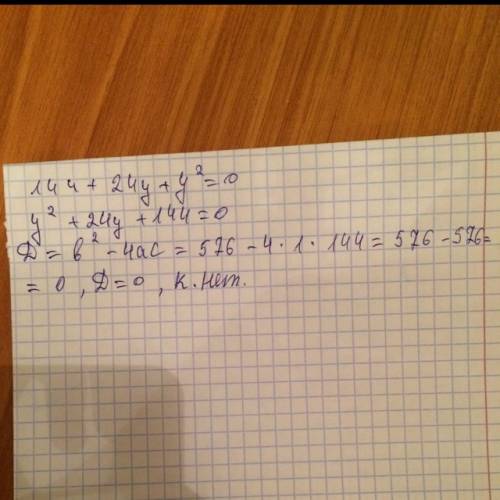 144 + 24y + y² = 0
y² + 24y + 144 = 0
Д = в² - 4ас = 576 - 4 · 1 · 144 = 576 - 576 =
= 0 , Д = 0 , К. Нет.